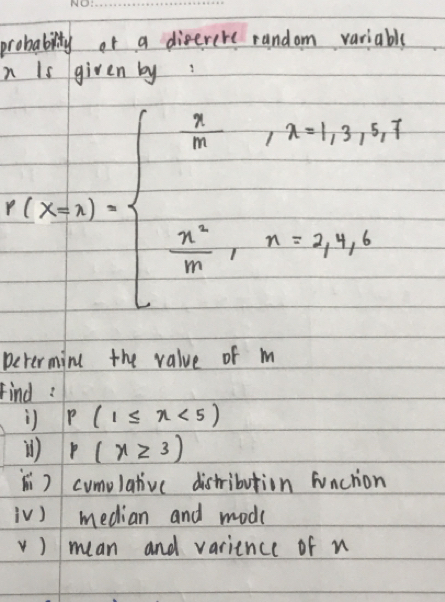 NO:
probability of a discrete random variable
x is given by :
x/m , x = 1, 3, 5, 7
P ( X = x ) =
x²/m , x = 2, 4, 6
Determine the value of m
Find :
i) P ( 1 ≤ x < 5 )
ii) P ( x ≥ 3 )
iii) cumulative distribution function
iv) median and mode
v) mean and varience of x